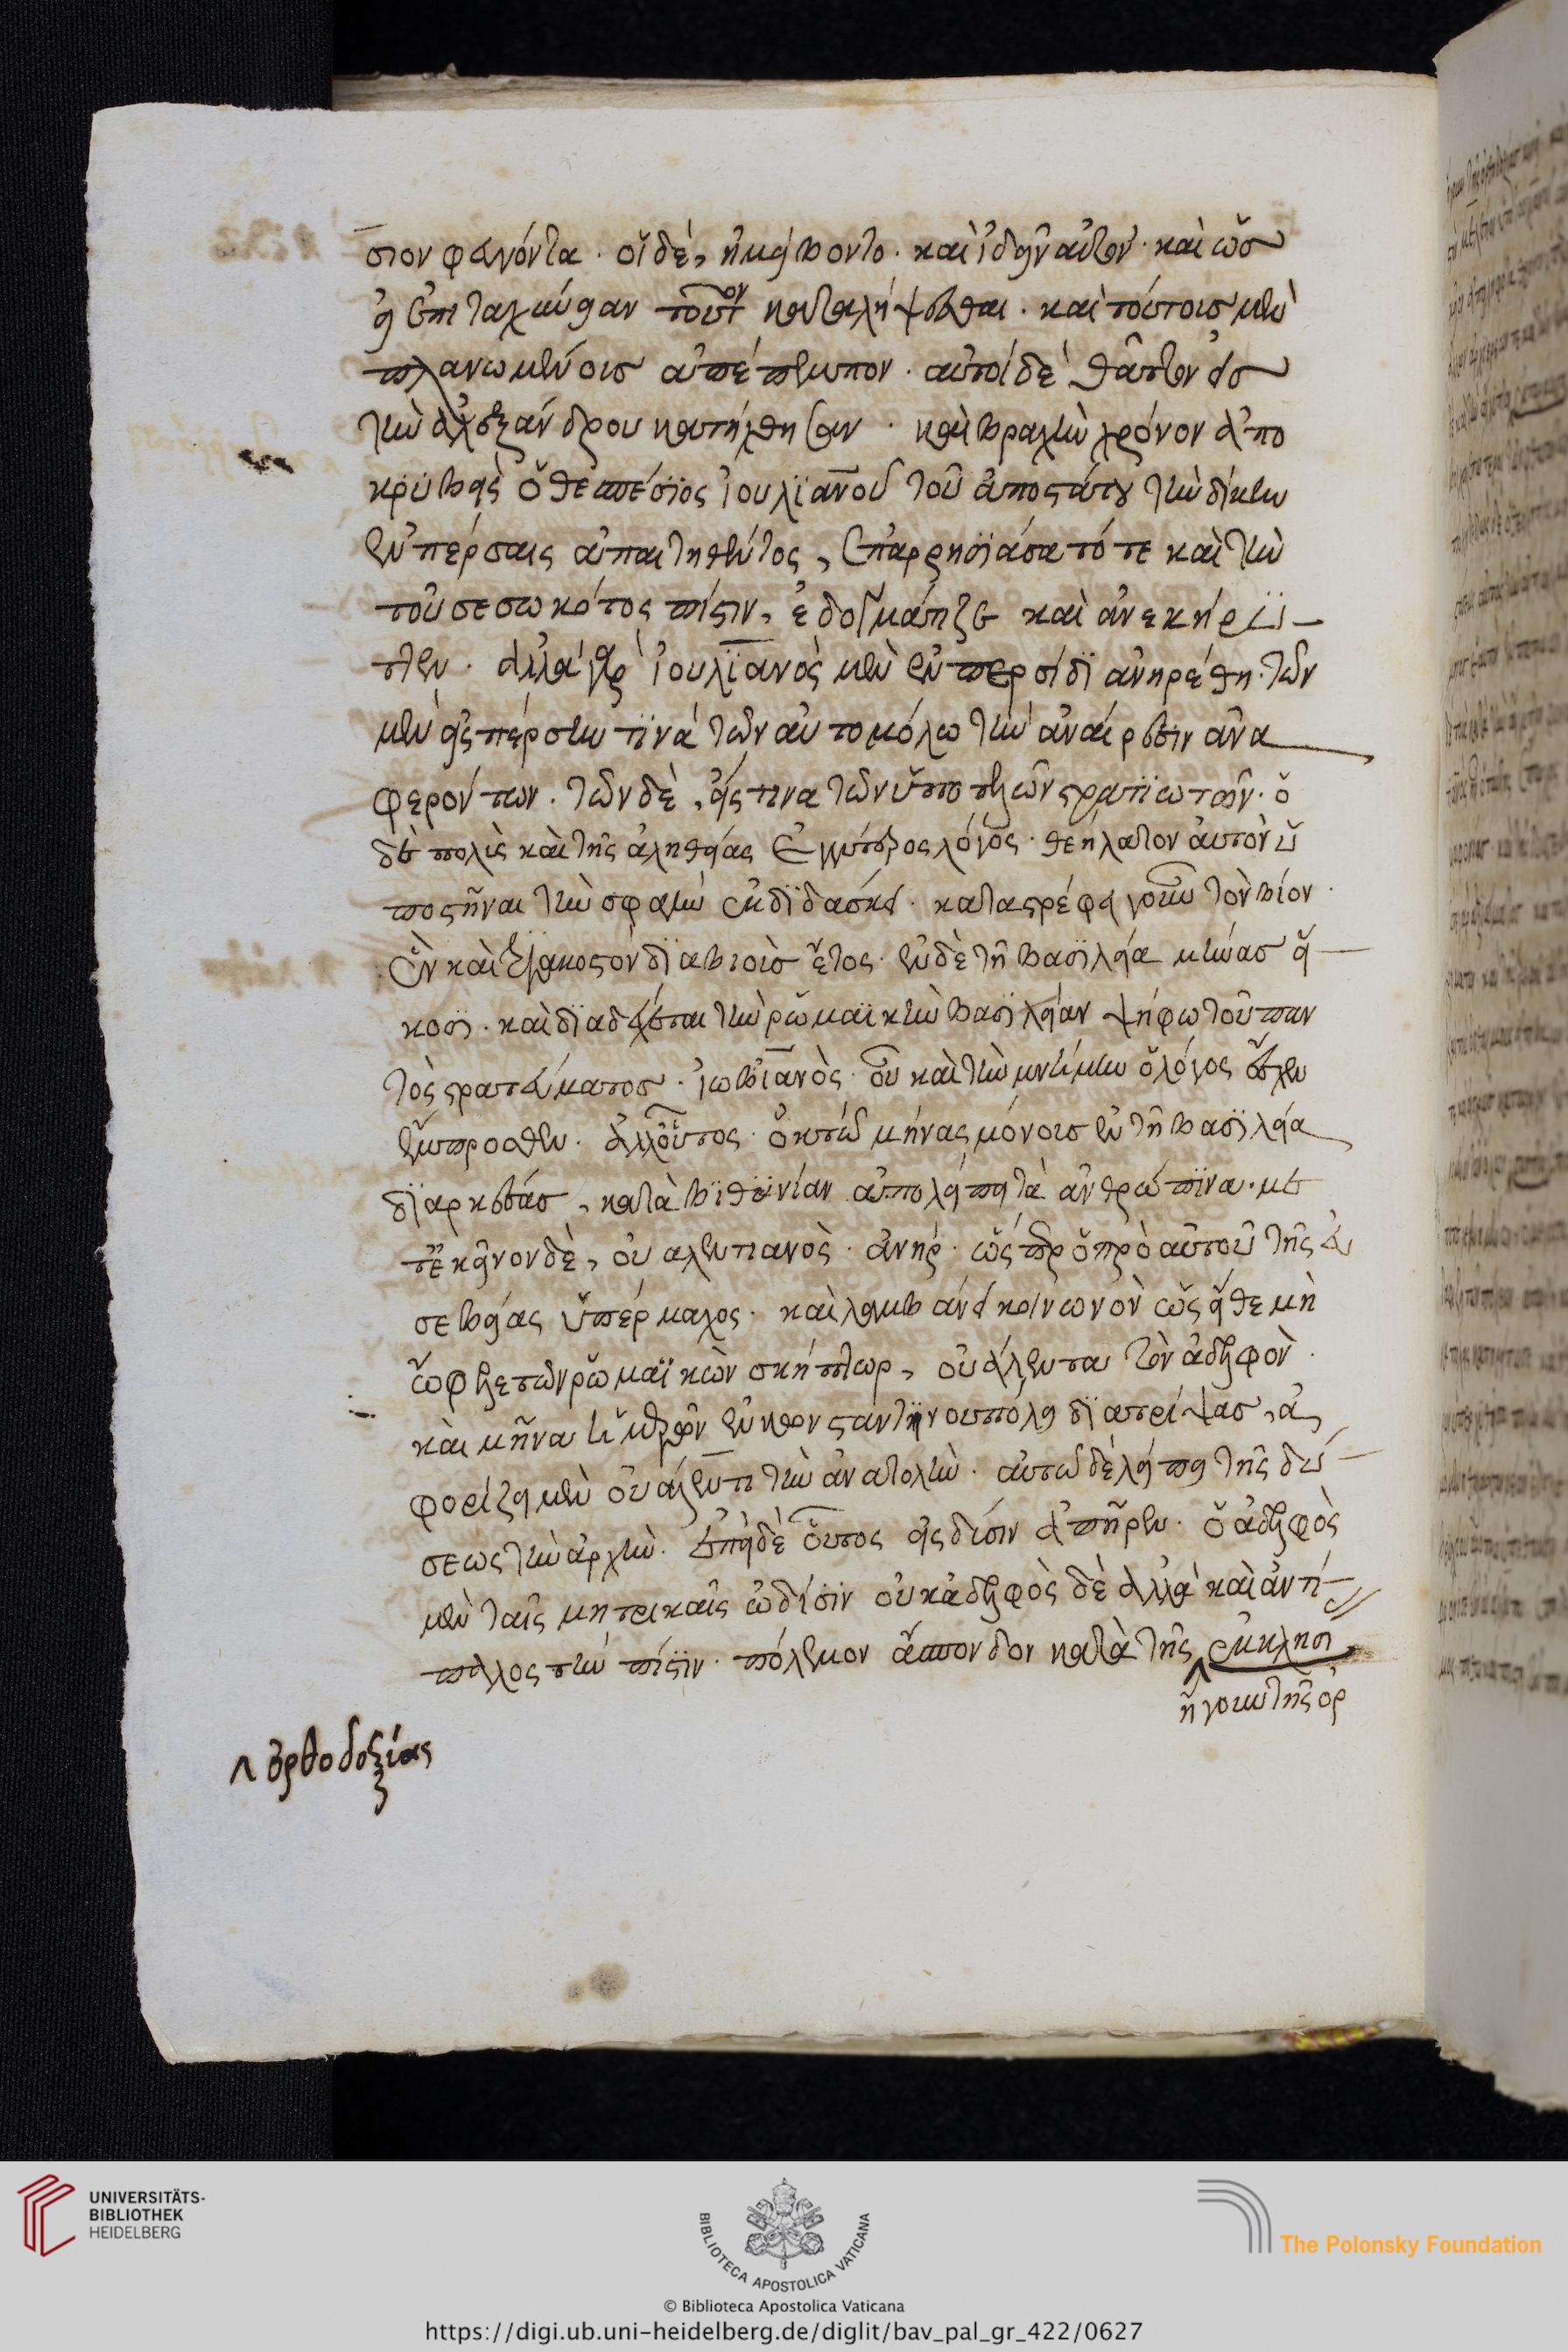 σιον φανόντα · οἱ δὲ, ἠμείβοντο · καὶ ἰδεῖν αὐτὸν · καὶ ὡσ
εἰ ἐπιταχύνειαν τοῦτον καταλήψεσθαι · καὶ τούτοισ μὲν
πλανωμένοισ ἀπέπεμπον · αὐτοὶ δὲ θᾶττον εἰσ
τὴν ἀλεξάνδρου κατήχθησαν · καὶ βραχὺν χρόνον ἀπο
κρυβεὶς ὁ θεσπέσϊος ἰουλϊανοῦ τοῦ ἀποστάτου τὴν δίκην
ἐν πέρσαις ἀπαιτηθέντος, ἐπαρρησϊάσατό τε καὶ τὴν
τοῦ σεσωκότος πίστιν, ἐδογμάτιζε καὶ ἀνεκήρυ
ττεν · ἀλλὰ γὰρ ἰουλϊανὸς μὲν ἐν περσίδϊ ἀνηρέθη · τῶν
μὲν εἰς πέρσην τϊνὰ τῶν αὐτομόλω τὴν ἀναίρεσιν ἀνα
φερόντων · τῶν δὲ, εἴς τινα τῶν ὑπὸ τελῶν στρατϊωτῶν · ὁ
δὲ πολὺς καὶ τῆς ἀληθείας ἐγγύτερος λόγος · θεήλατον αὐτὸν ὑ
ποστῆναι τὴν σφαγὴν ἐκδϊδάσκει · καταστρέφει γοῦν τὸν βίον ·
ἓν καὶ τριακοστὸν δϊαβιοὺσ ἔτος · ἐν δὲ τῇ βασϊλεία μῆνασ εἴ
κοσϊ · καὶ δϊαδέχεται τὴν ῥωμαϊκὴν βασϊλείαν ψήφω τοῦ παν
τὸς στρατεύματοσ · ἰωβϊανὸς · οὗ καὶ τὴν μνήμην ὁ λόγος ἔσχεν
ἔμπροσθεν · ἀλλ' οὗτος · ὀκτὼ μῆνας μόνουσ ἐν τῇ βασϊλεία
δϊαρκέσασ, κατὰ βϊθϋνίαν ἀπολείπει τὰ ἀνθρώπϊνα · με
τ' ἐκεῖνον δὲ, οὐαλεντιανὸς · ἀνὴρ · ὥσπερ ὁ πρὸ αὐτοῦ τῆς εὐ
σεβείας ὑπέρμαχος · καὶ λαμβάνει κοινωνὸν ὡς εἴθε μὴ
ὤφελε τῶν ῥωμαϊκῶν σκήπτρων, οὐάλεντα τὸν ἀδελφὸν ·
φορίζει μὲν οὐάλεντι τὴν ἀνατολὴν · αὐτῶ δὲ λείπει τῆς δύ
σεως τὴν ἀρχὴν · ἐπεὶ δὲ οὗτος εἰς δύσιν ἀπῆρεν · ὁ ἀδελφὸς
μὲν ταῖς μητρικαῖς ὠδίσϊν οὐκ ἀδελφὸς δὲ ἀλλὰ καὶ ἀντί
παλος τὴν πίστϊν · πόλεμον ἄσπονδον κατὰ τῆς ἐκκλησι
ἤγουν τῆς ὀρ
ὀρθοδοξίας
UNIVERSITÄTS-
BIBLIOTHEK
HEIDELBERG
BIBLIOTECA APOSTOLICA VATICANA
The Polonsky Foundation
© Biblioteca Apostolica Vaticana
https://digi.ub.uni-heidelberg.de/diglit/bav_pal_gr_422/0627